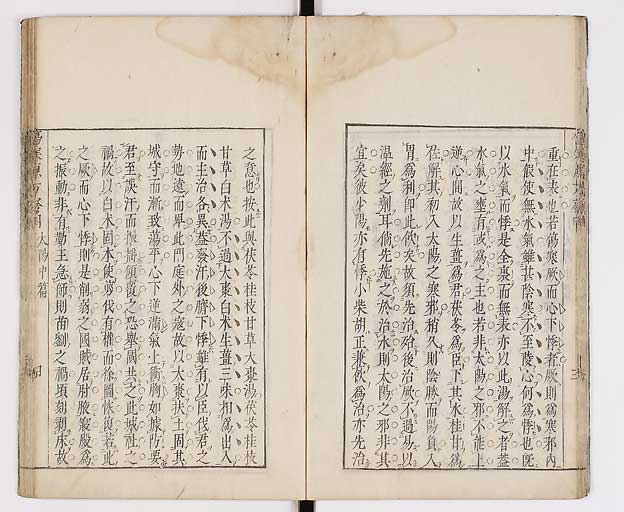 重在表也若傷寒厥而心下悸者厥則爲寒邪内
中假使無水氣雖甚陰寒不至陵心何爲悸也既
以水氣而悸是全裏而無表亦以此湯解之者蓋
水氣之壅有或爲之主也若非太陽之邪不能上
逆心間故以生薑爲君茯苓爲臣下其水桂甘爲
佐解其初入太陽之寒邪稍久則陰勝而陽負入
胃爲利即此飲矣故須先治殆後治厥不過易以
温經之劑耳倘先施之於治水則太陽之邪非其
宜矣彼少陽亦有悸小柴胡正兼飲爲治亦先治
之意也按此與茯苓桂枝甘草大棗湯茯苓桂枝
甘草白术湯不過大棗白术生薑三味相爲出入
而主治各異蓋發汗後臍下悸雖有以臣伐君之
勢地遠而卑此門庭外之寇故以大棗扶土固其
城守而漸致蕩平心下逆滿氣上衝胸如據防要
君至誤汗而振搖傾覆之恐舉國失之此城社之
禍故以白术固本使剪伐有權而徐圖恢復若此
之厥而心下悸則是削弱之國賊居肘腋褻處爲
之振動非有勤王急師則苗劉之禍頃刻剥床故
太陽中篇